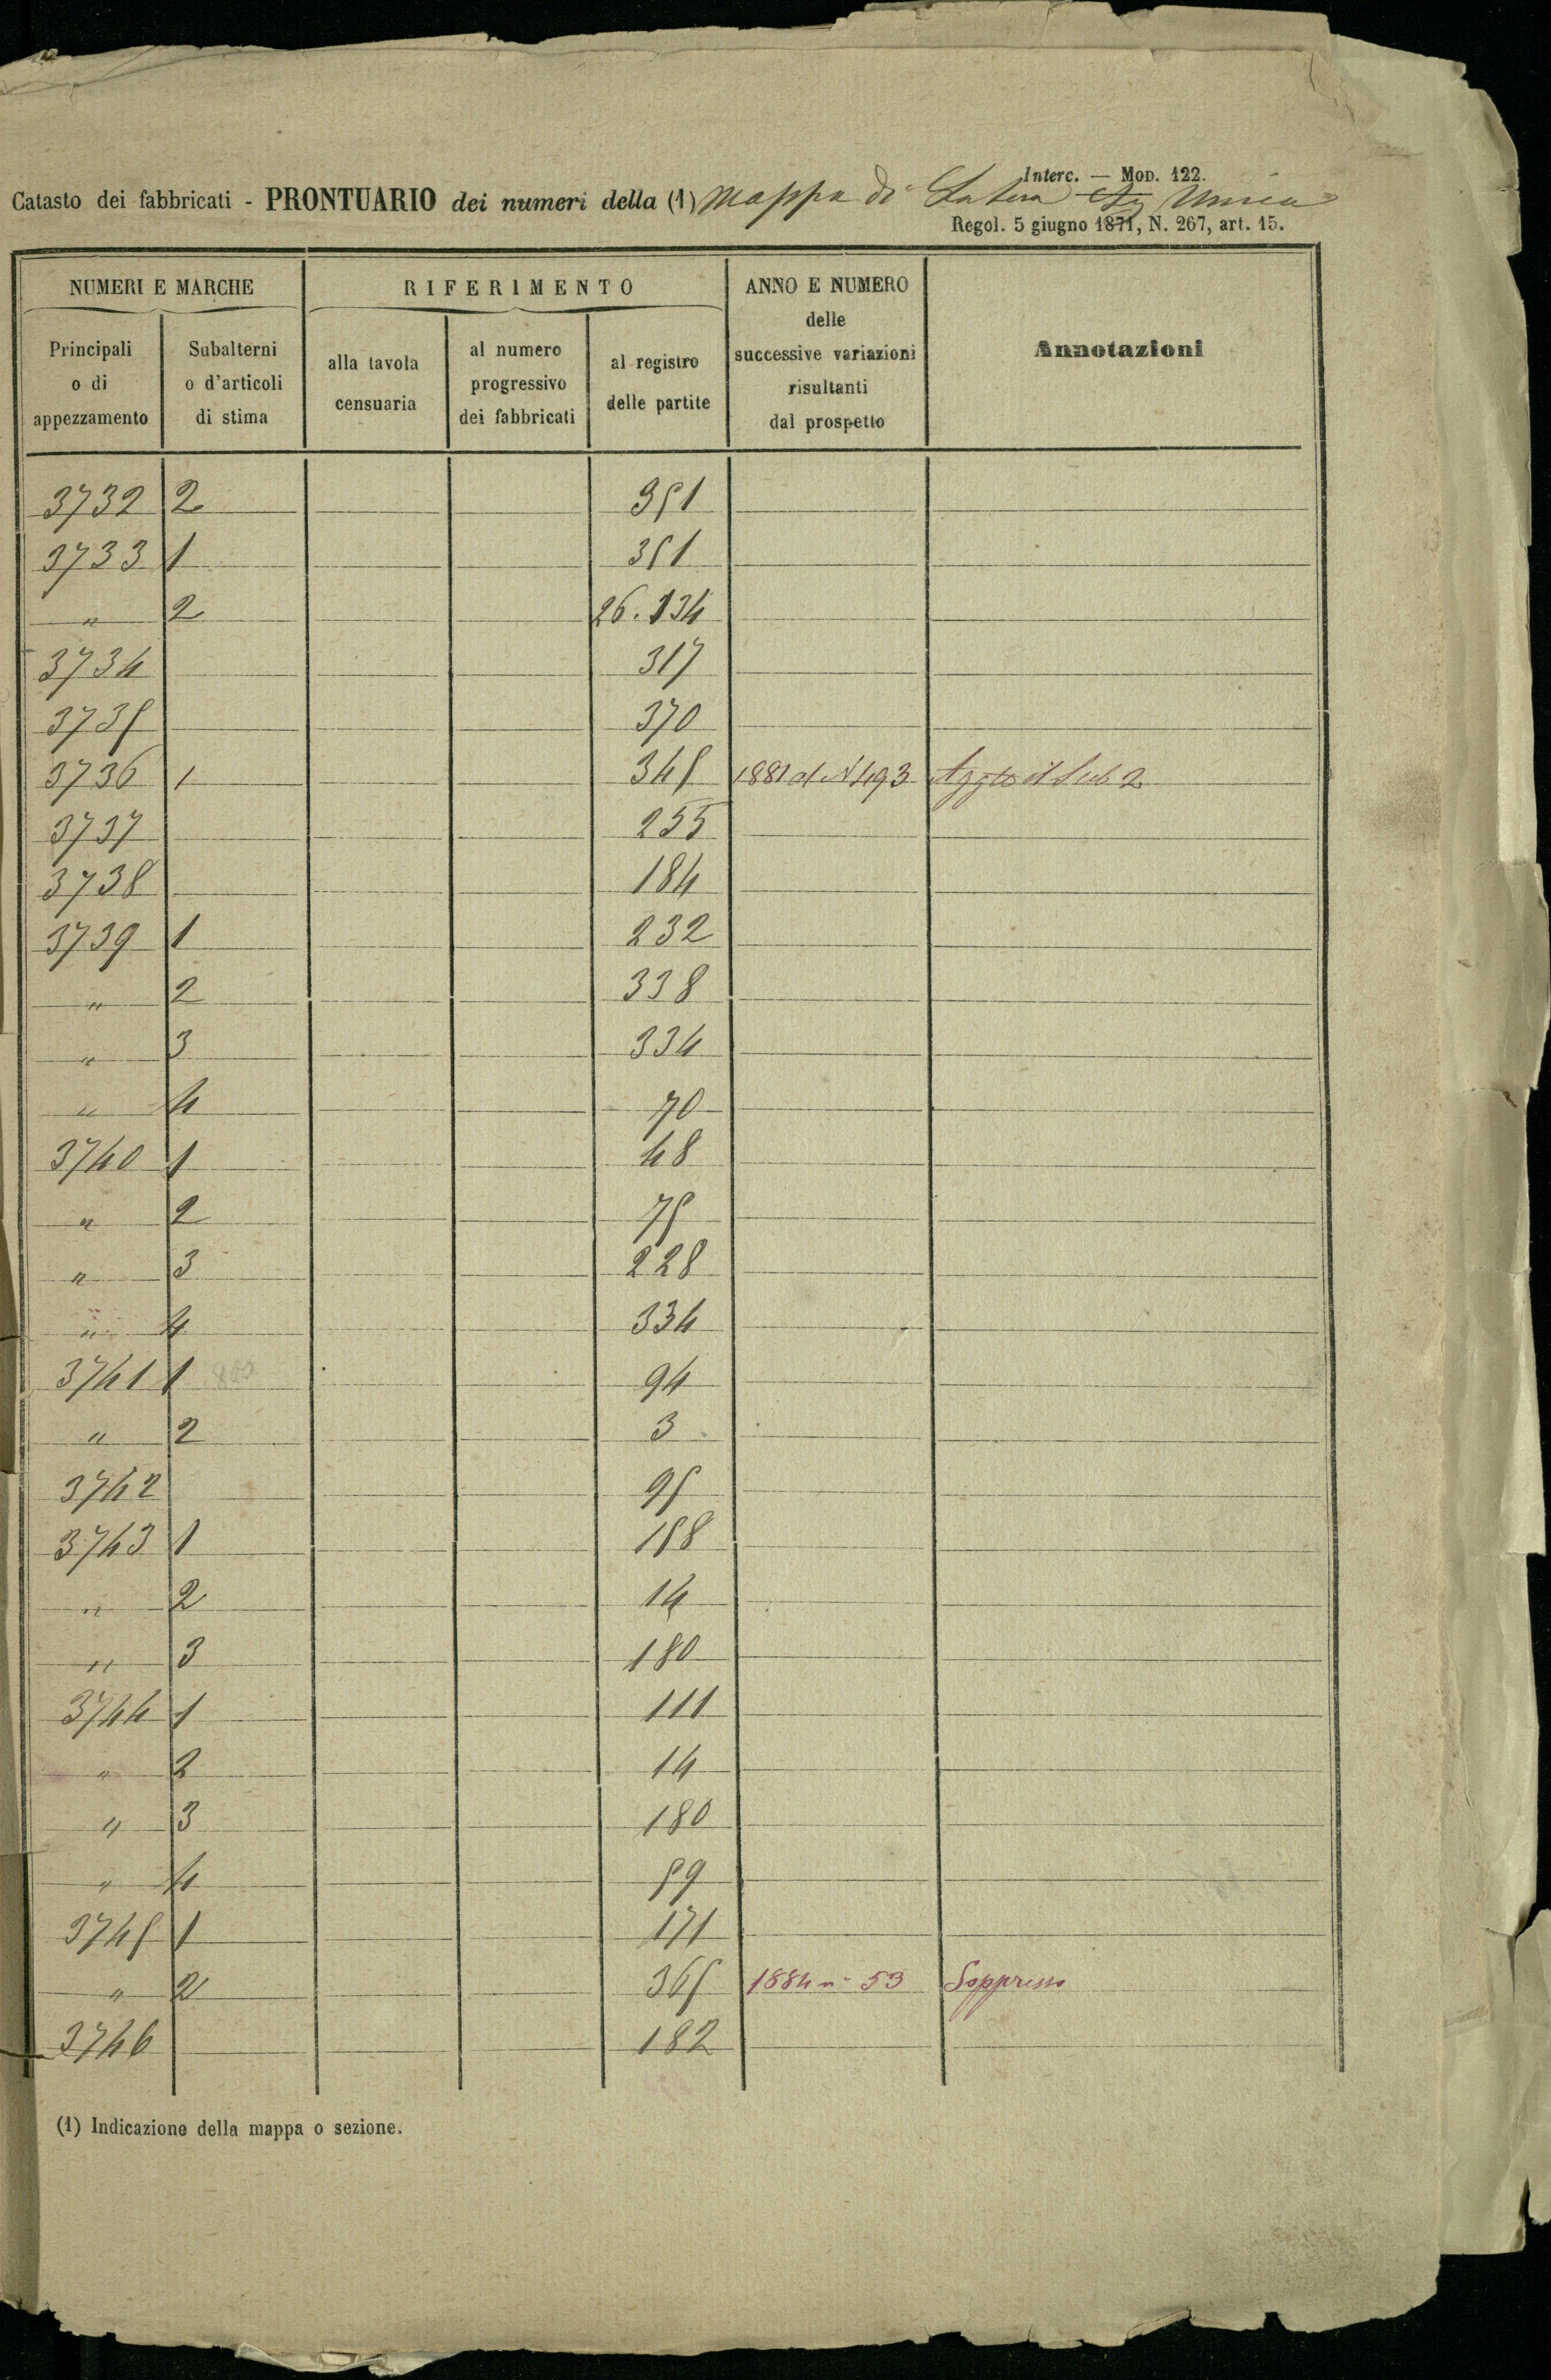 Interc. — Mod. 122.
Catasto dei fabbricati - PRONTUARIO dei numeri della (1) Mappa di Latera Sez Unica
Regol. 5 giugno 1871, N. 267, art. 15.
NUMERI E MARCHE RIFERIMENTO ANNO E NUMERO delle successive variazioni risultanti dal prospetto Annotazioni
Principali o di appezzamento Subalterni o d'articoli di stima alla tavola censuaria al numero progressivo dei fabbricati al registro delle partite
3732 2 351
3733 1 351
" 2 26.134
3734 317
3735 370
3736 1 345 1881 al N 493 Aggto il Sub 2
3737 255
3738 184
3739 1 232
" 2 338
" 3 334
" 4 70
3740 1 48
" 2 75
" 3 228
" 4 334
3741 1 94
" 2 3
3742 95
3743 1 158
" 2 14
" 3 180
3744 1 111
" 2 14
" 3 180
" 4 59
3745 1 171
" 2 365 1884 n° 53 Soppresso
3746 182
(1) Indicazione della mappa o sezione.